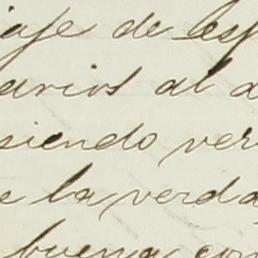 aje de esp
arios al a
siendo ver
e la verda
buena con